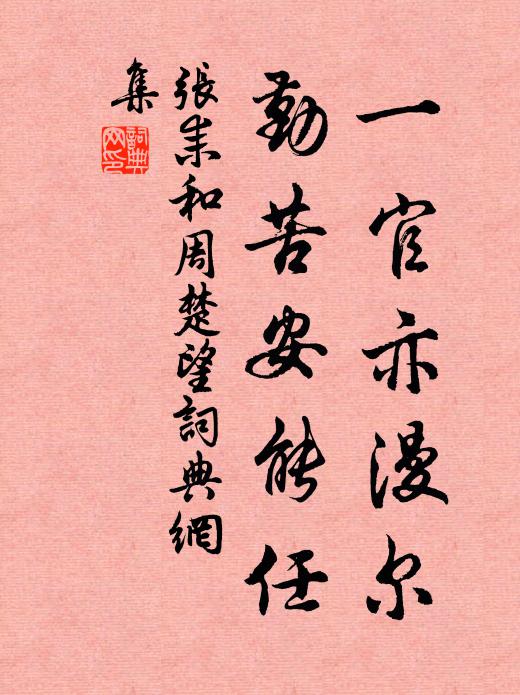 一官亦漫尔
勤苦安能任
張耒和周楚望詞典網
集
詞典网印